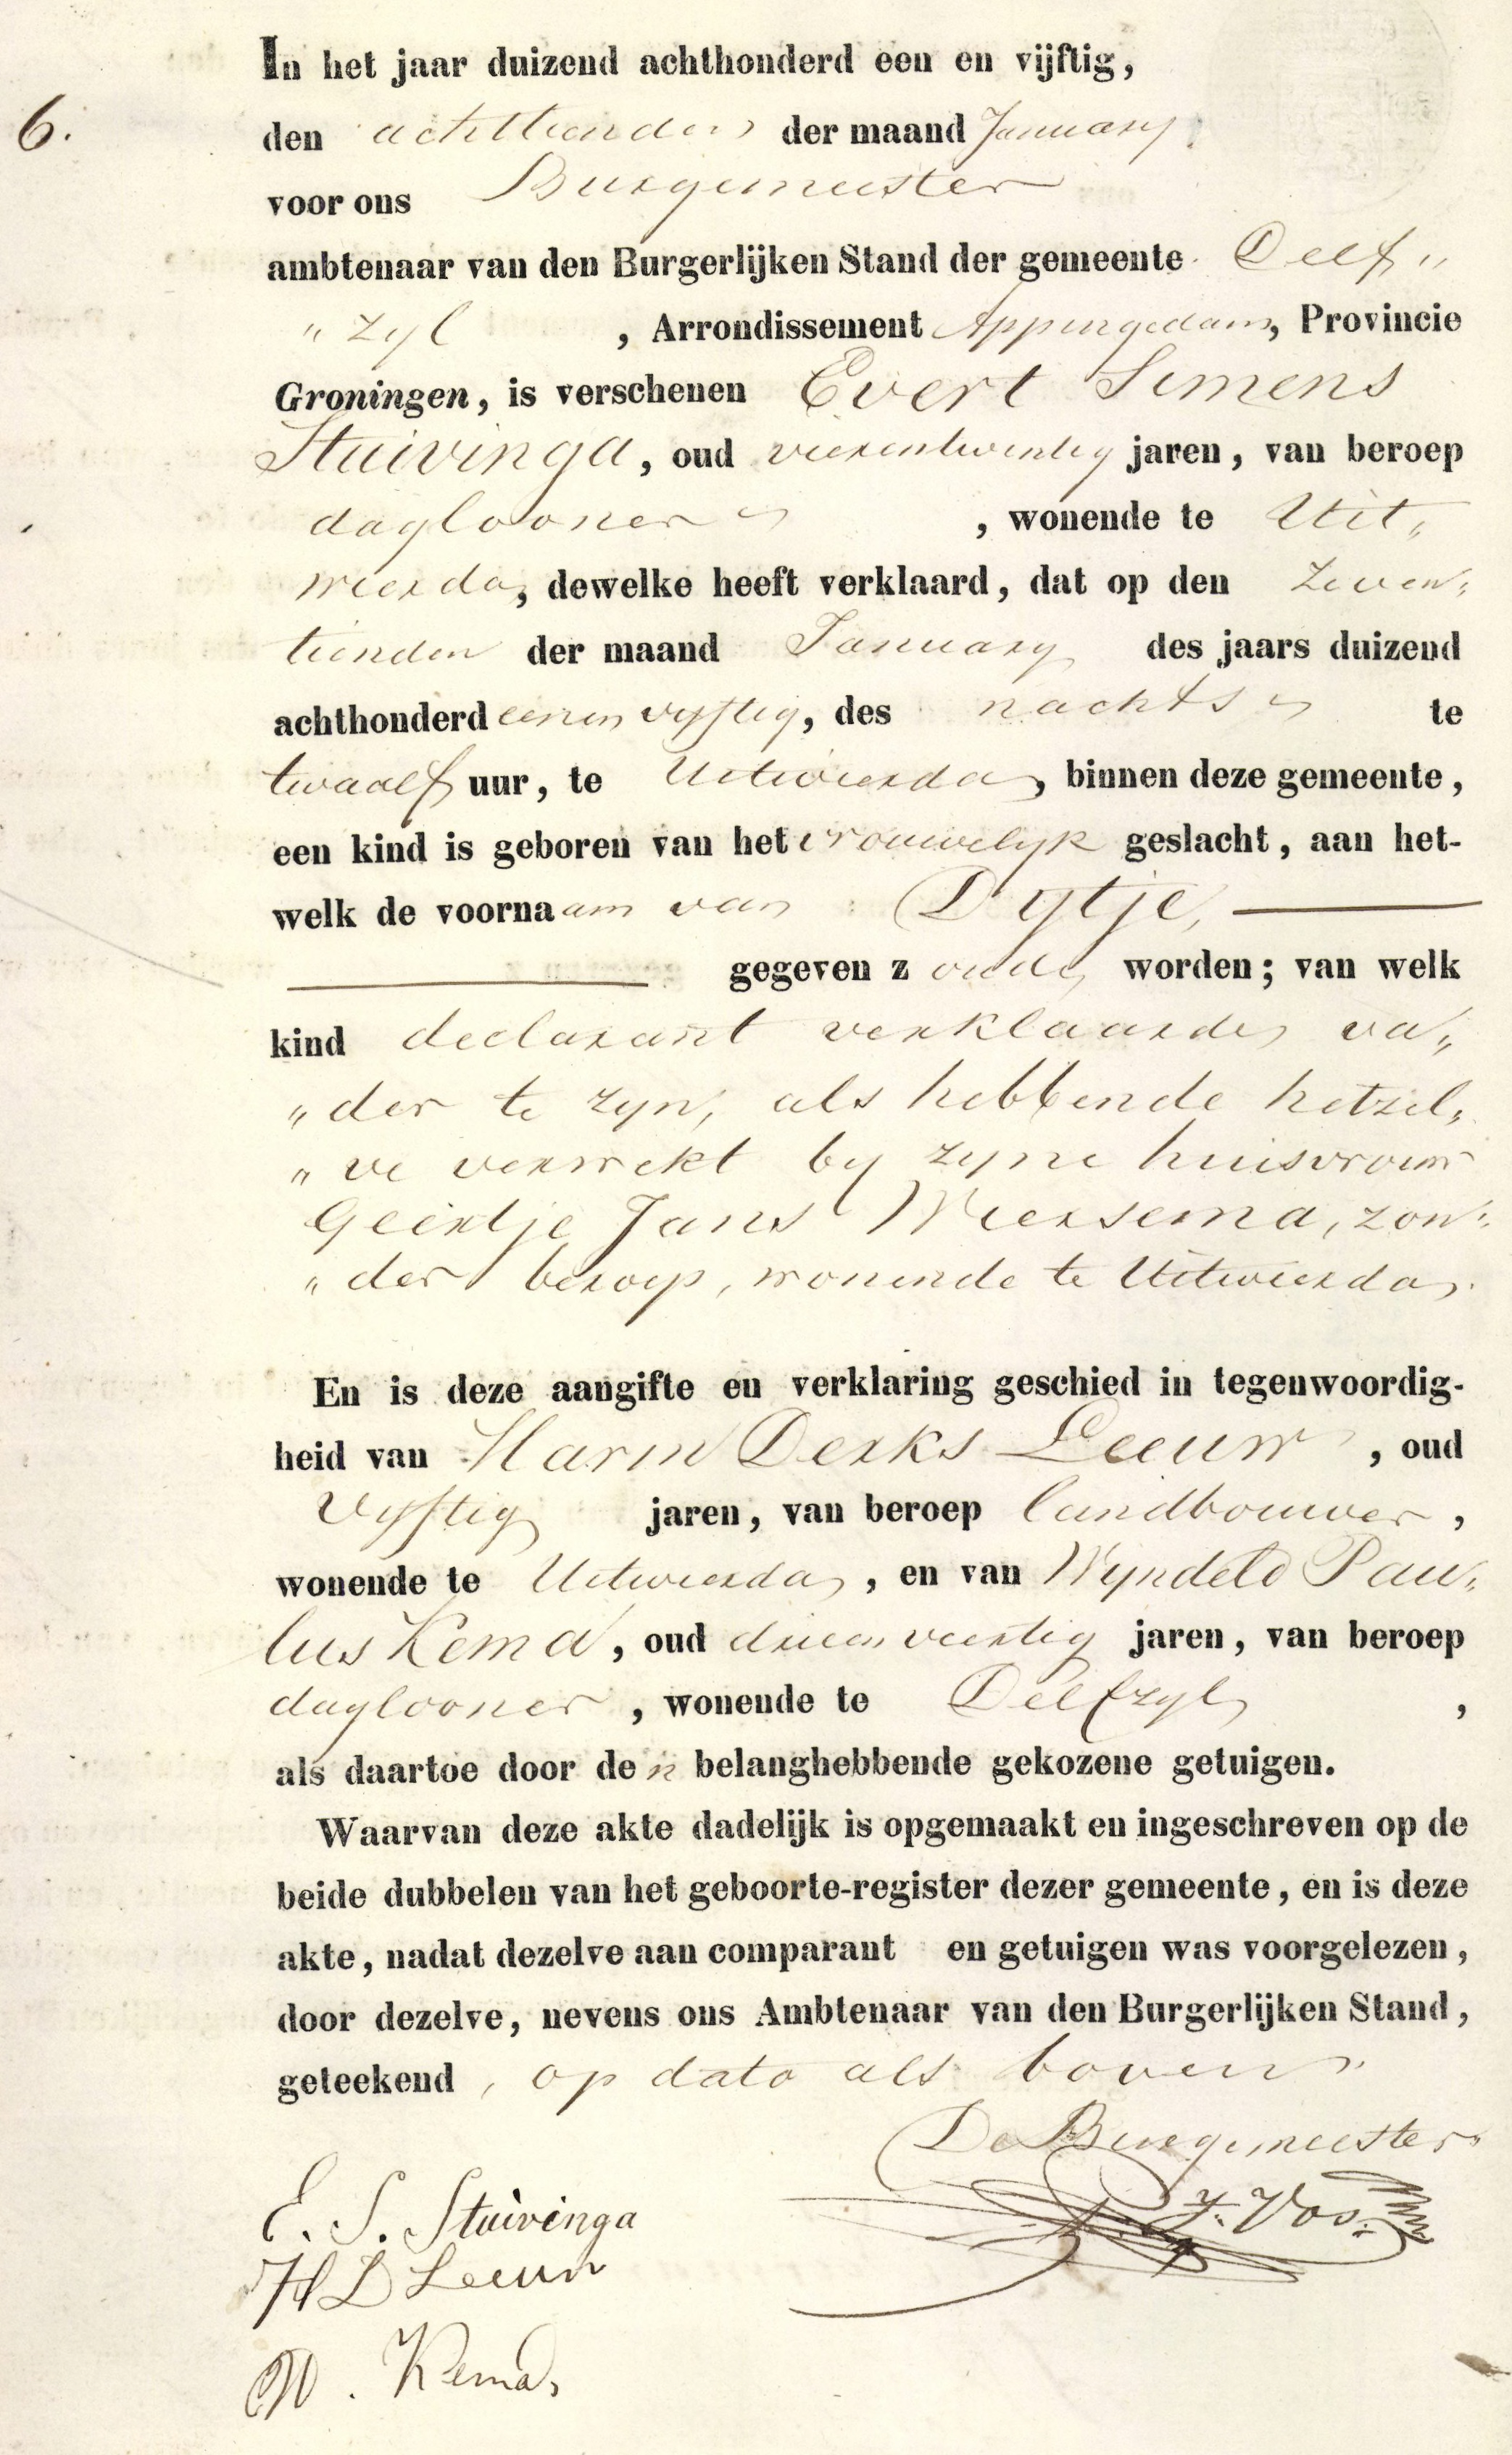 In het jaar duizend achthonderd een en vijftig,
6.
den achttienden der maand January
voor ons Burgemeester
ambtenaar van den Burgerlijken Stand der gemeente Delf„
„zyl , Arrondissement Appingedam, Provincie
Groningen, is verschenen Evert Simens
Stuivinga, oud vierentwintig jaren, van beroep
daglooner , wonende te Uit„
wierda, dewelke heeft verklaard, dat op den zeven„
tienden der maand January des jaars duizend
achthonderd eenen vyftig, des nachts te
twaalf uur, te Uitwierda, binnen deze gemeente,
een kind is geboren van het vrouwelyk geslacht, aan het-
welk de voornaam van Dytje,
gegeven zoude worden; van welk
kind declarant verklaarde va„
„der te zyn, als hebbende hetzel„
„ve verwekt by zyne huisvrouw
Geertje Jans Wiersema, zon„
„der beroep, wonende te Uitwierda.
En is deze aangifte en verklaring geschied in tegenwoordig-
heid van Harm Derks Leeuw, oud
vyftig jaren, van beroep landbouwer,
wonende te Uitwierda, en van Wyndeld Pau„
lus Kema, oud drieenveertig jaren, van beroep
daglooner, wonende te Delfzyl,
als daartoe door den belanghebbende gekozene getuigen.
Waarvan deze akte dadelijk is opgemaakt en ingeschreven op de
beide dubbelen van het geboorte-register dezer gemeente, en is deze
akte, nadat dezelve aan comparant en getuigen was voorgelezen,
door dezelve, nevens ons Ambtenaar van den Burgerlijken Stand,
geteekend, op dato als boven.
De Burgemeester
E. S. Stuivinga
J. Vos.
H D Leeuw
W. Kema